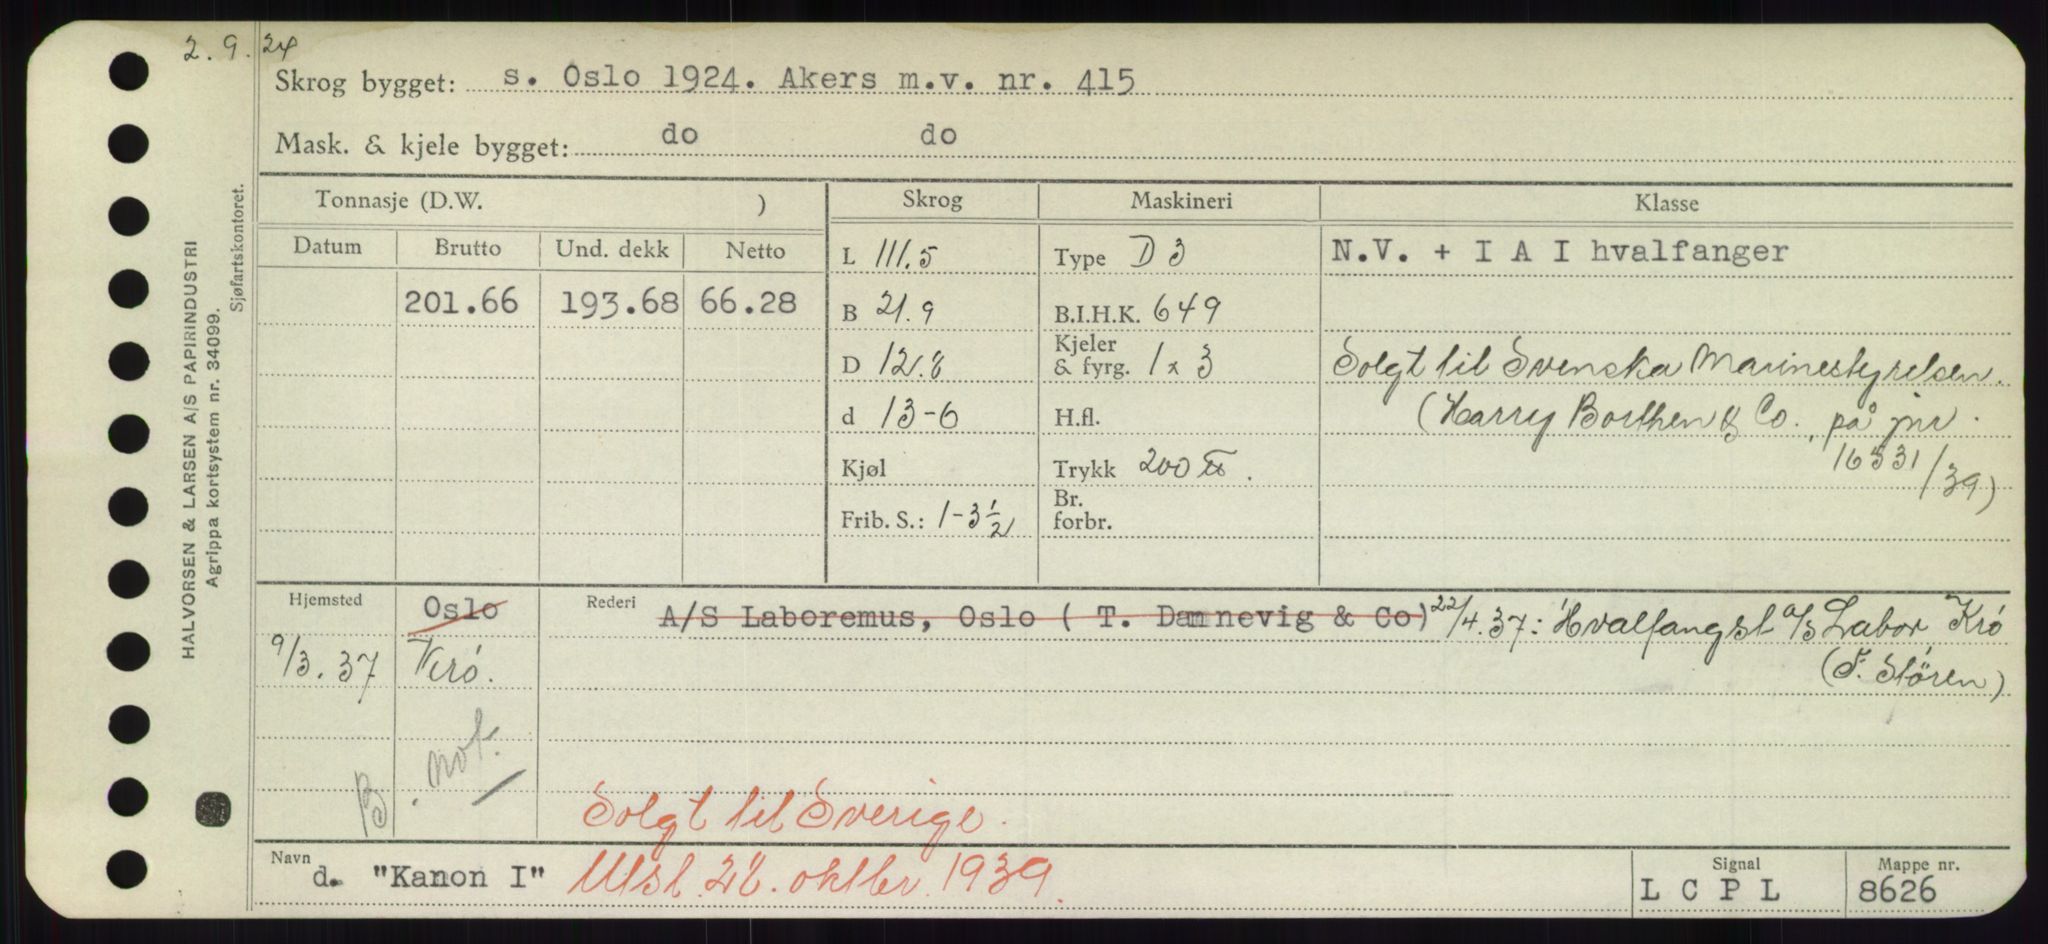 2.9.24
Skrog bygget: s. Oslo 1924. Akers m.v. nr. 415
Mask. & kjele bygget: do do
HALVORSEN & LARSEN A/S PAPIRINDUSTRI
Agrippa kortsystem nr. 34099.
Sjøfartskontoret.
Tonnasje (D.W. ) Skrog Maskineri Klasse
Datum Brutto Und. dekk Netto L 111.5 Type D 3 N.V. + I A I hvalfanger
201.66 193.68 66.28 B 21.9 B.I.H.K. 649
D 12.8 Kjeler & fyrg. 1 x 3 Solgt til Svenska Marinestyrelsen.
d 13-6 H.fl. (Harry Borthen & Co., på jnr.
Kjøl Trykk 200 16531/39)
Frib. S.: 1-3½ Br. forbr.
Hjemsted Oslo Rederi A/S Laboremus, Oslo ( T. Damnevig & Co) 22/4.37: Hvalfangst a/s Labor Krö
9/3.37 (F. Stören)
B. not.
Solgt til Sverige.
Navn d. "Kanon I" Utsl. 28. oktbr. 1939. Signal L C P L Mappe nr. 8626